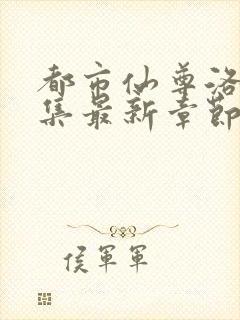 都市仙尊洛
集最新章節
侯軍軍